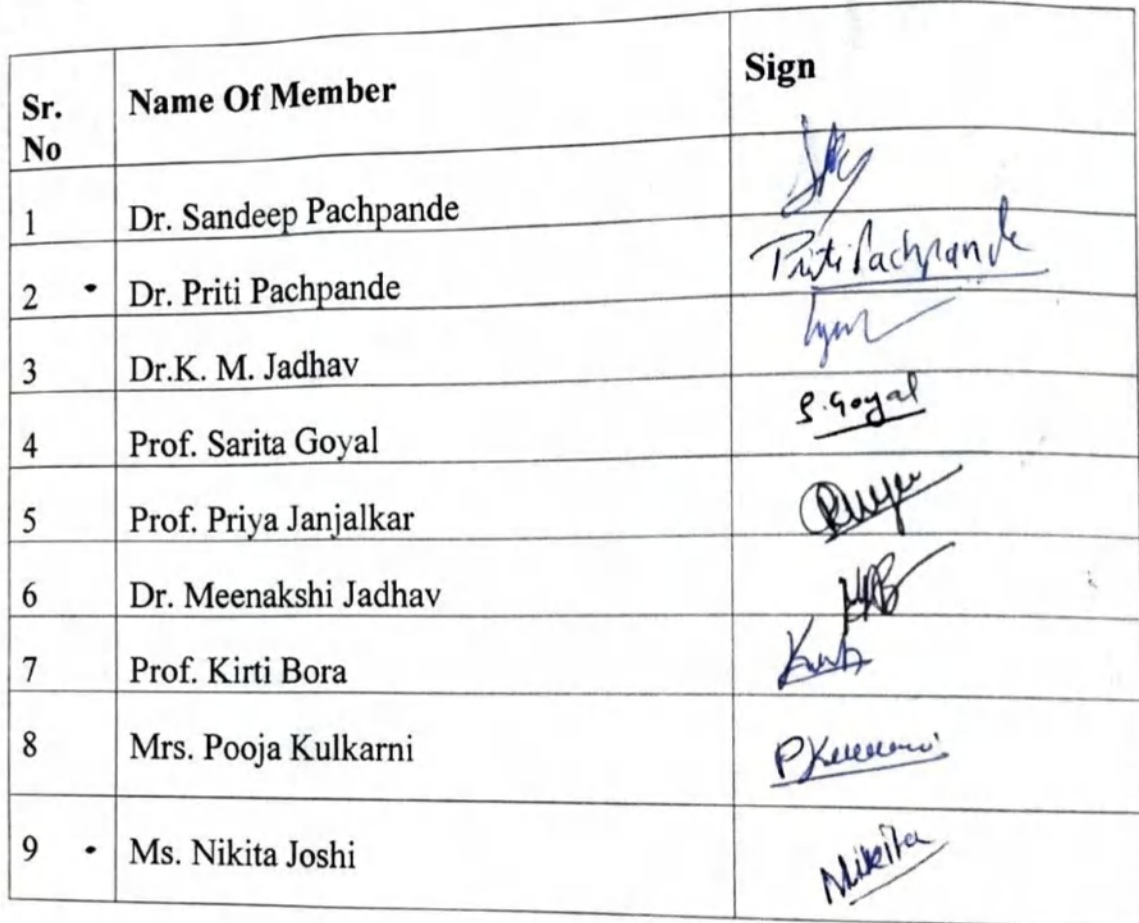 Sr. No Name Of Member Sign
1 Dr. Sandeep Pachpande
2 Dr. Priti Pachpande Priti Pachpande
3 Dr.K. M. Jadhav
4 Prof. Sarita Goyal S. Goyal
5 Prof. Priya Janjalkar
6 Dr. Meenakshi Jadhav
7 Prof. Kirti Bora
8 Mrs. Pooja Kulkarni
9 Ms. Nikita Joshi Nikita